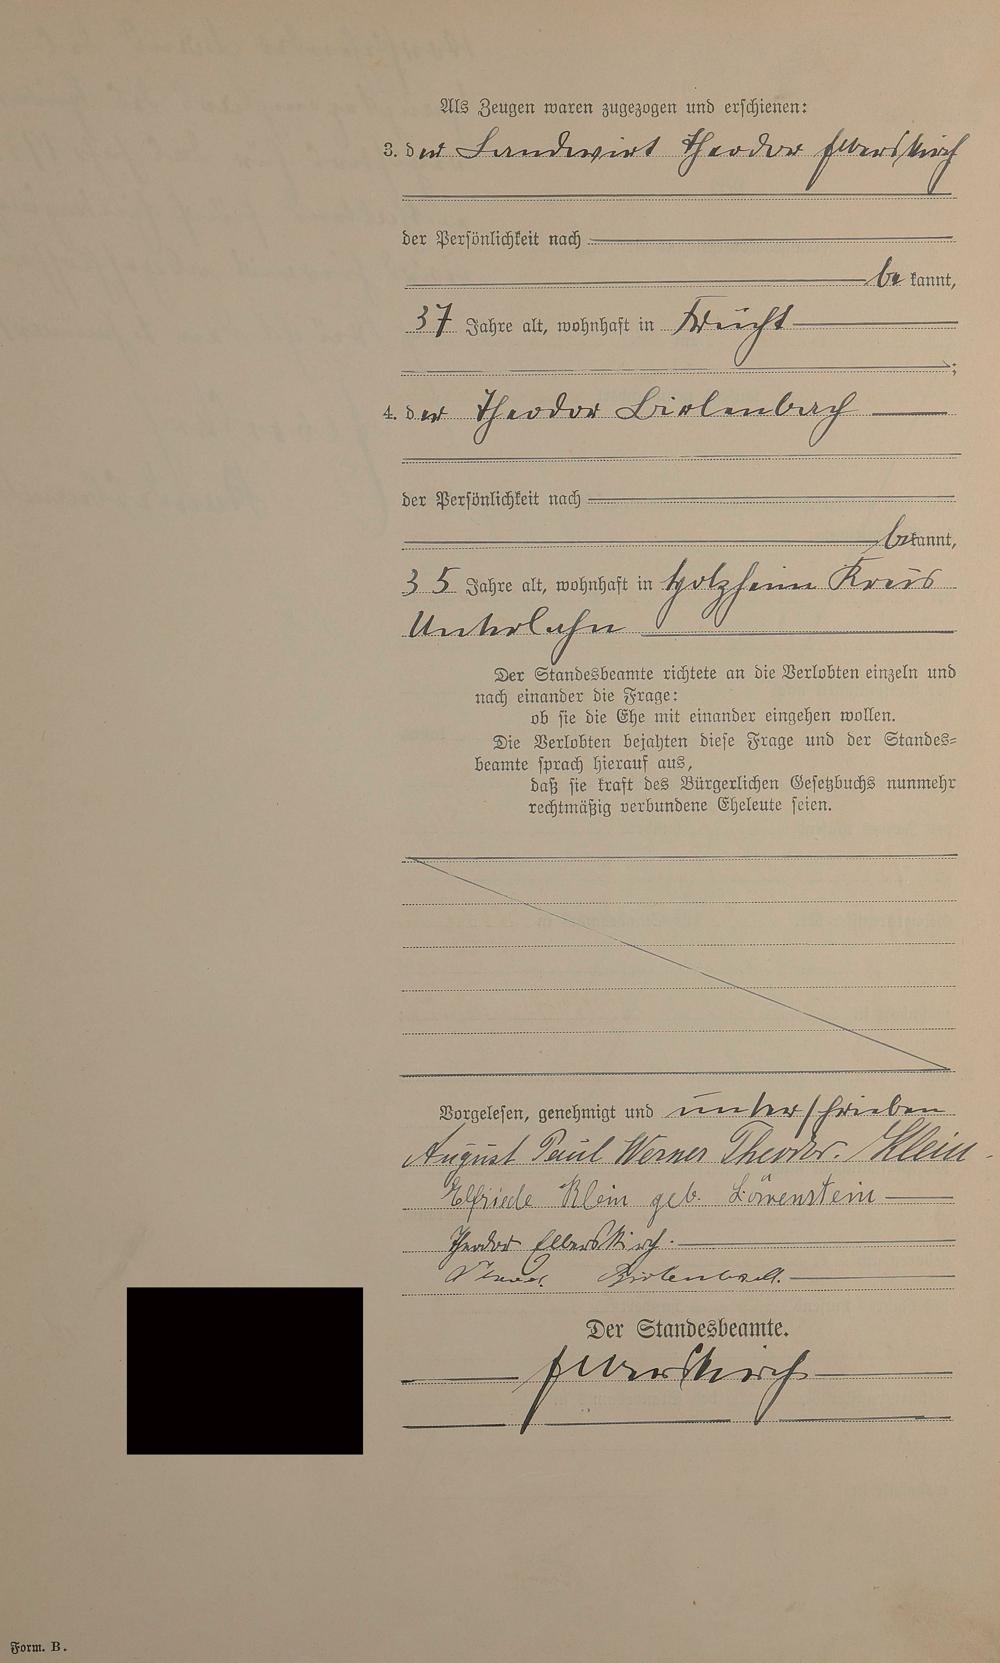 Als Zeugen waren zugezogen und erschienen:
3. der Landwirt Theodor Elberskirch
der Persönlichkeit nach
be kannt,
37 Jahre alt, wohnhaft in Frücht
;
4. der Theodor Birlenbach
der Persönlichkeit nach
bekannt,
35 Jahre alt, wohnhaft in Holzheim Kreis
Unterlahn
Der Standesbeamte richtete an die Verlobten einzeln und
nach einander die Frage:
ob sie die Ehe mit einander eingehen wollen.
Die Verlobten bejahten diese Frage und der Standes=
beamte sprach hierauf aus,
daß sie kraft des Bürgerlichen Gesetzbuchs nunmehr
rechtmäßig verbundene Eheleute seien.
Vorgelesen, genehmigt und unterschrieben
August Paul Werner Theodor Klein
Elfriede Klein geb. Löwenstein
Theodor Elberskirch.
Birlenbach.
Der Standesbeamte.
Elberskirch
Form. B.